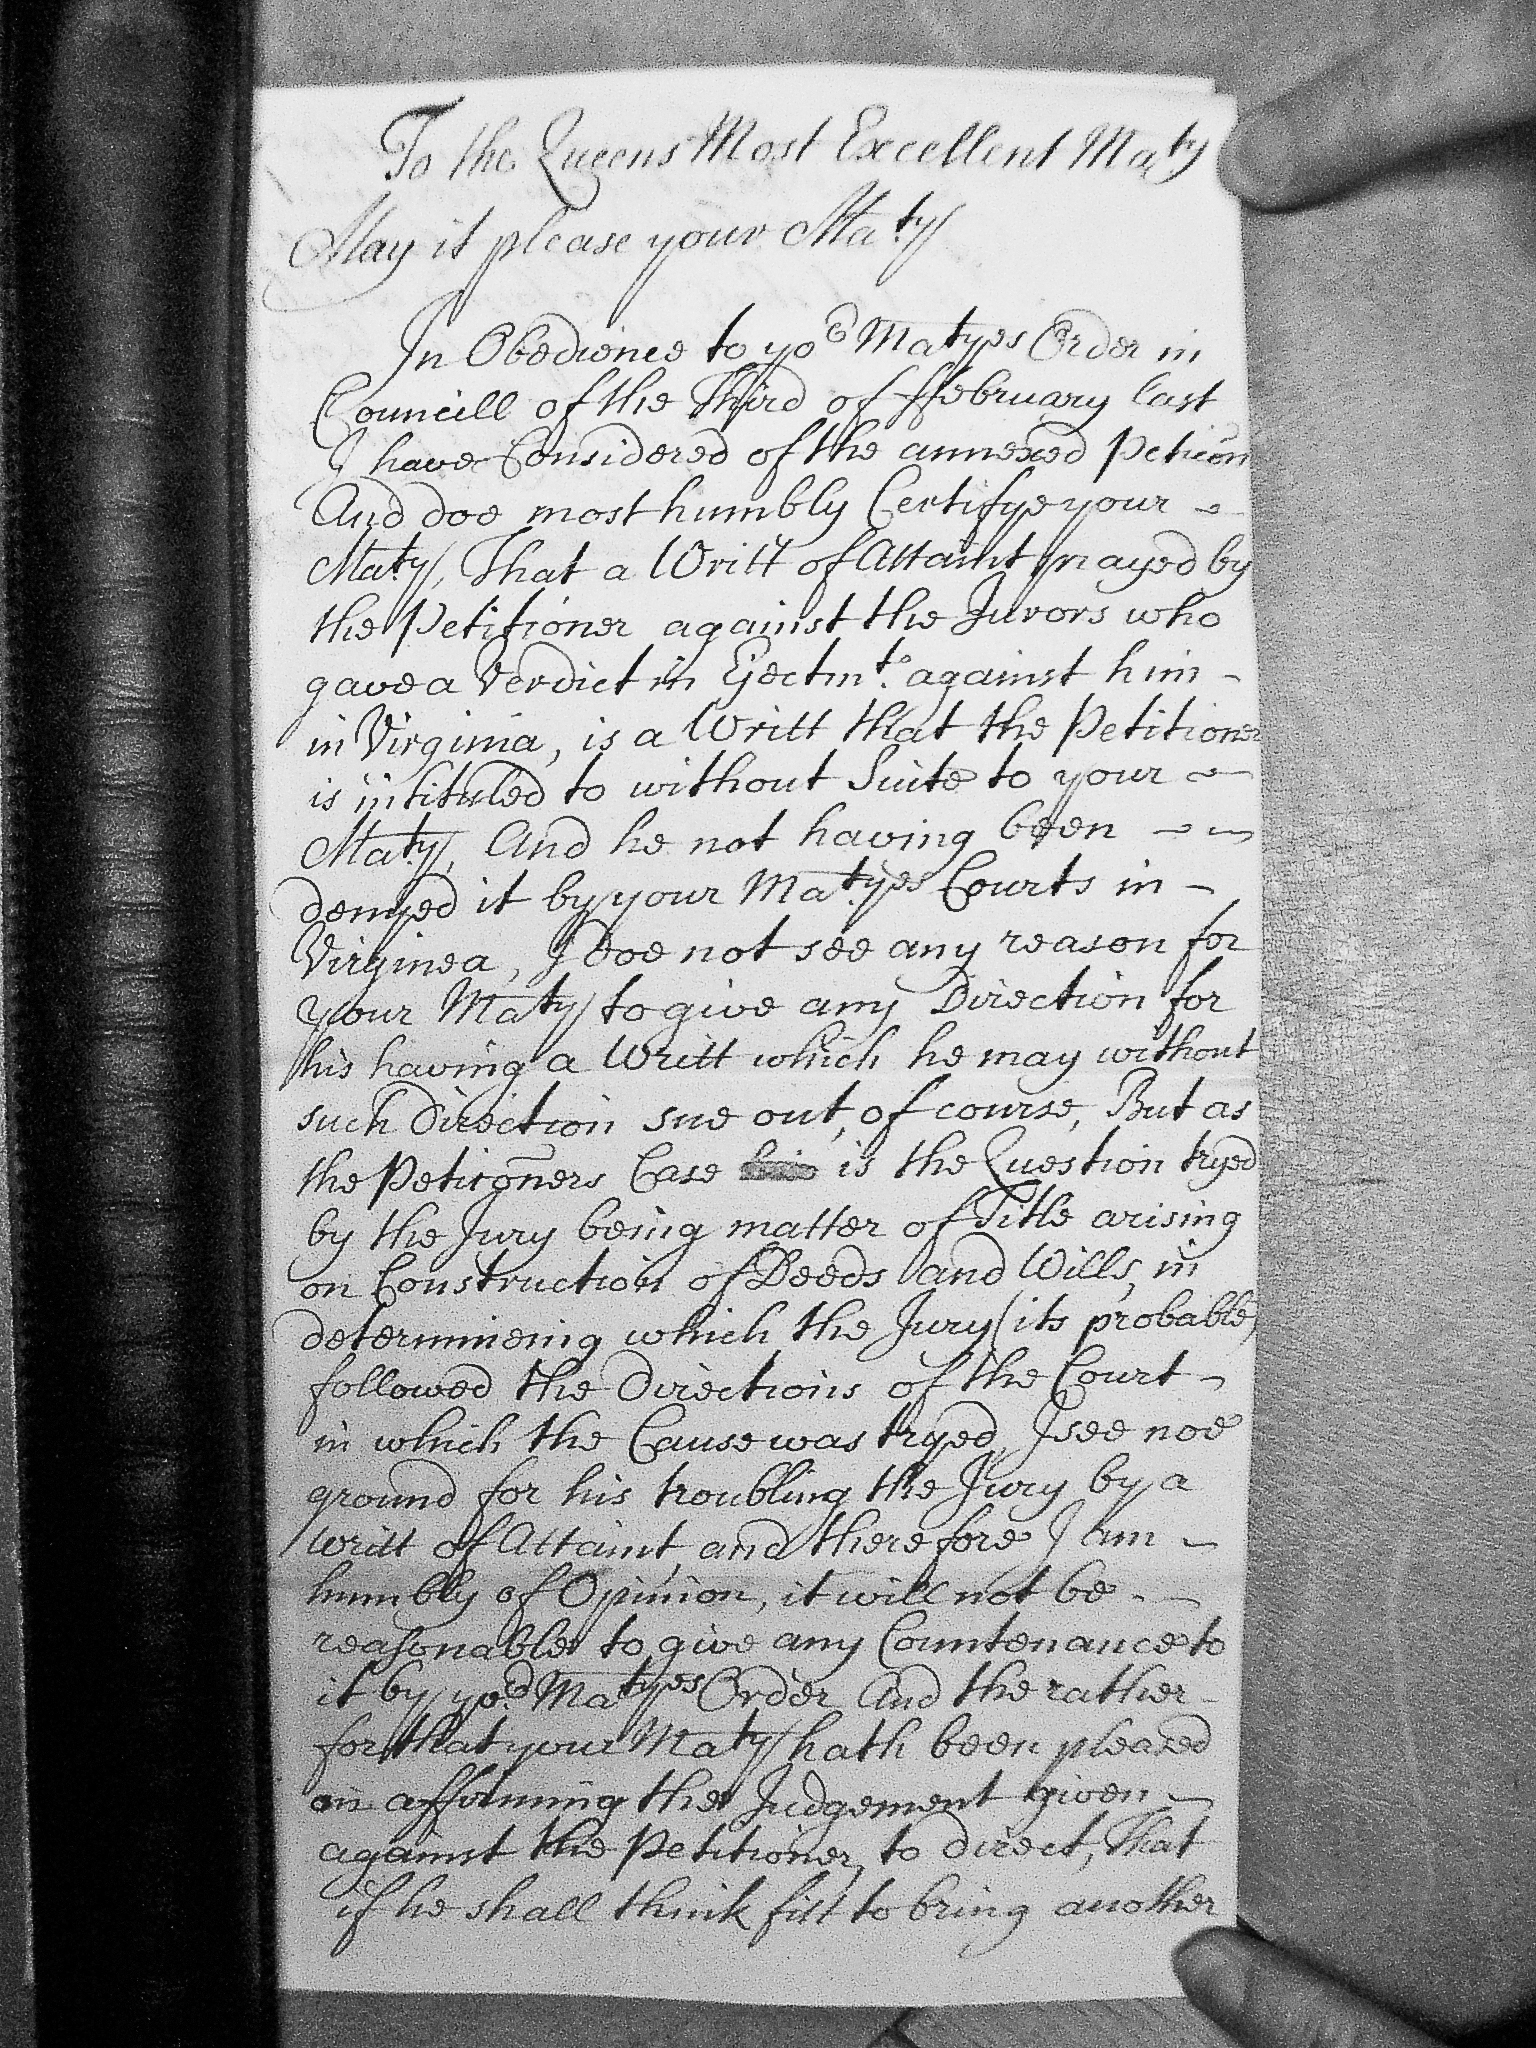 To the Queens Most Excellent Maty
May it please your Maty
In Obedience to yor Matyes Order in
Councill of the Third of ffebruary last
I have Considered of the annexed Peticōn
And doe most humbly Certifye your
Maty, That a Writt of Attaint prayed by
the Petitioner against the Jurors who
gave a Verdict in Ejectmt. against him
in Virginia, is a Writt that the Petitioner
is intituled to without Suite to your
Maty, And he not having been
denyed it by your Matyes Courts in
Virginea, I doe not see any reason for
your Maty to give any Direction for
his having a Writt which he may without
such Direction sue out, of course, But as
the Peticōners Case is the Question tryed
by the Jury being matter of Title arising
on Construction of Deeds and Wills, in
determineing which the Jury (its probable)
followed the Directions of the Court
in which the Cause was tryed, I see noe
ground for his troubling the Jury by a
Writt of Attaint, and therefore I am
humbly of Opinion, it will not be
reasonable to give any Countenance to
it by yor Matyes Order And the rather
for that your Maty hath been pleased
in affirming the Judgement given
against the Petitioner, to direct, That
if he shall think fitt to bring another